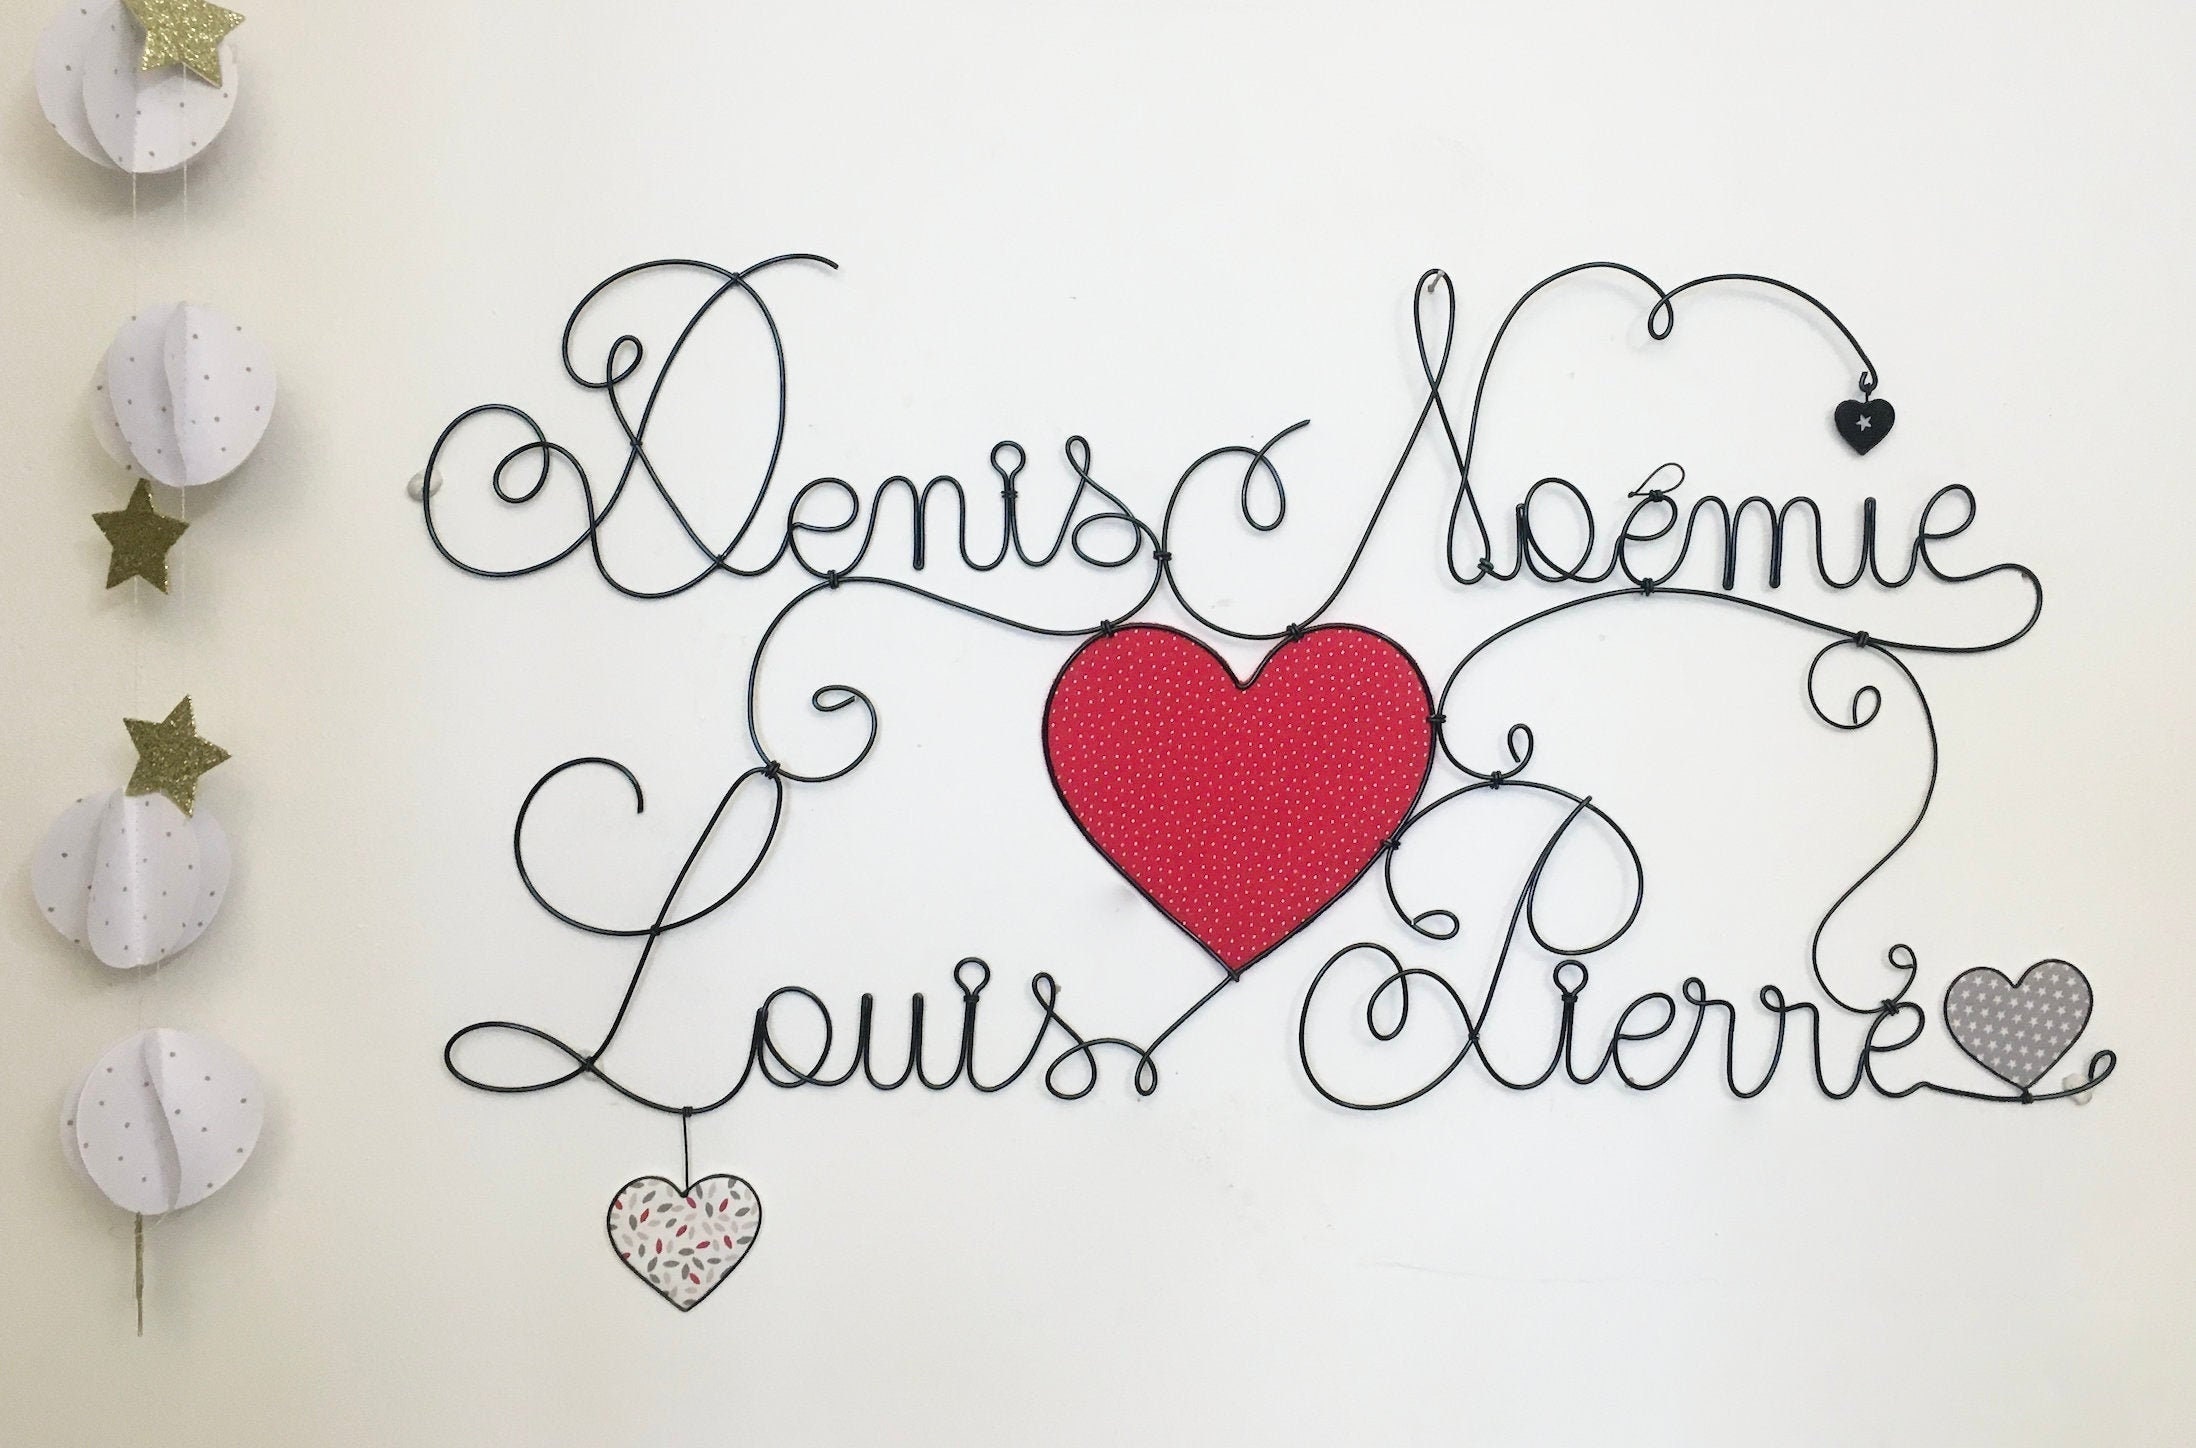 Denis Noémie
Louis Pierre